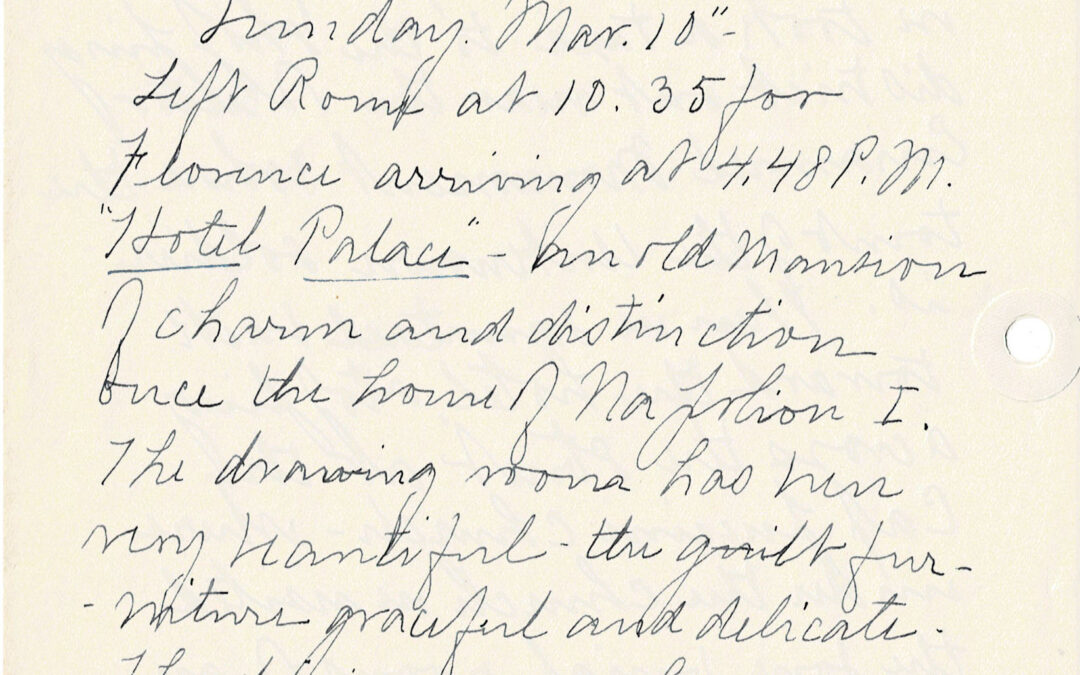 Sunday. Mar. 10"-
Left Rome at 10.35 for
Florence arriving at 4.48 P.M.
"Hotel Palace" - an old Mansion
of charm and distinction
once the home of Napoleon I.
The drawing room has been
very beautiful - the guilt fur-
-niture graceful and delicate.
The